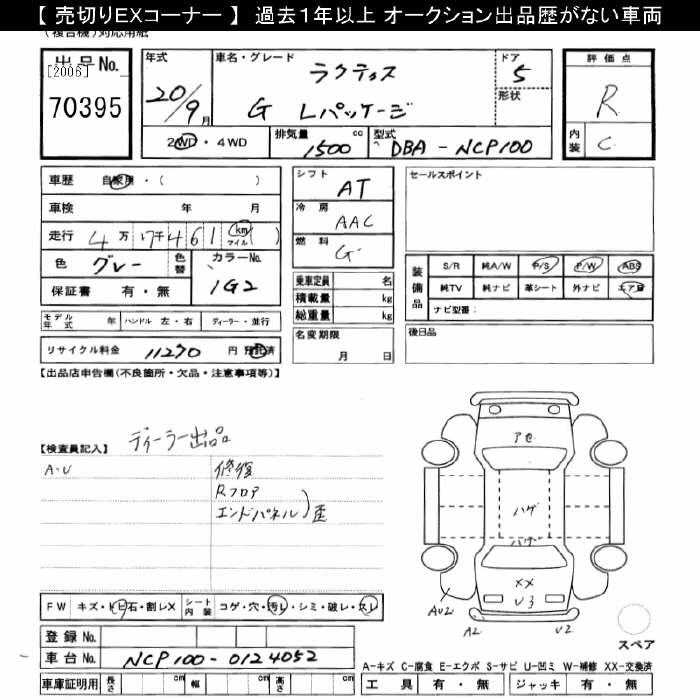 【 売切りEXコーナー 】 過去１年以上 オークション出品歴がない車両
(複合機)対応用紙
出品No.
[2006]
70395
年式
20/9月
車名・グレード
ラクティス
G Lパッケージ
ドア
5
形状
評価点
R
内装
C
2WD・4WD
排気量
1500
cc
型式
DBA - NCP100
車歴 自家用・( )
車検 年 月
走行 4万 7千461 km マイル ( )
色 グレー
色替
カラーNo.
1G2
保証書 有・無
モデル年式 年
ハンドル 左・右
ディーラー・並行
リサイクル料金 11270 円 預託済
シフト AT
冷房 AAC
燃料 G
乗車定員 名
積載量 kg
総重量 kg
名変期限
月 日
セールスポイント
装備品
S/R 純A/W P/S P/W ABS
純TV 純ナビ 革シート 外ナビ エアB
ナビ型番：
後日品
【出品店申告欄(不良箇所・欠品・注意事項等)】
ディーラー出品
【検査員記入】
A・U
修復
Rフロア
エンドパネル) 歪
アセ
ハゲ
ハゲ
XX
U3
AU2
A2
U2
スペア
FW
キズ・トビ石・割レX
シート内装
コゲ・穴・汚レ・シミ・破レ・スレ
登録No.
車台No. NCP100-0124052
車庫証明用 長さ cm 幅 cm 高さ cm
A-キズ C-腐食 E-エクボ S-サビ U-凹ミ W-補修 XX-交換済
工具 有・無 ジャッキ 有・無